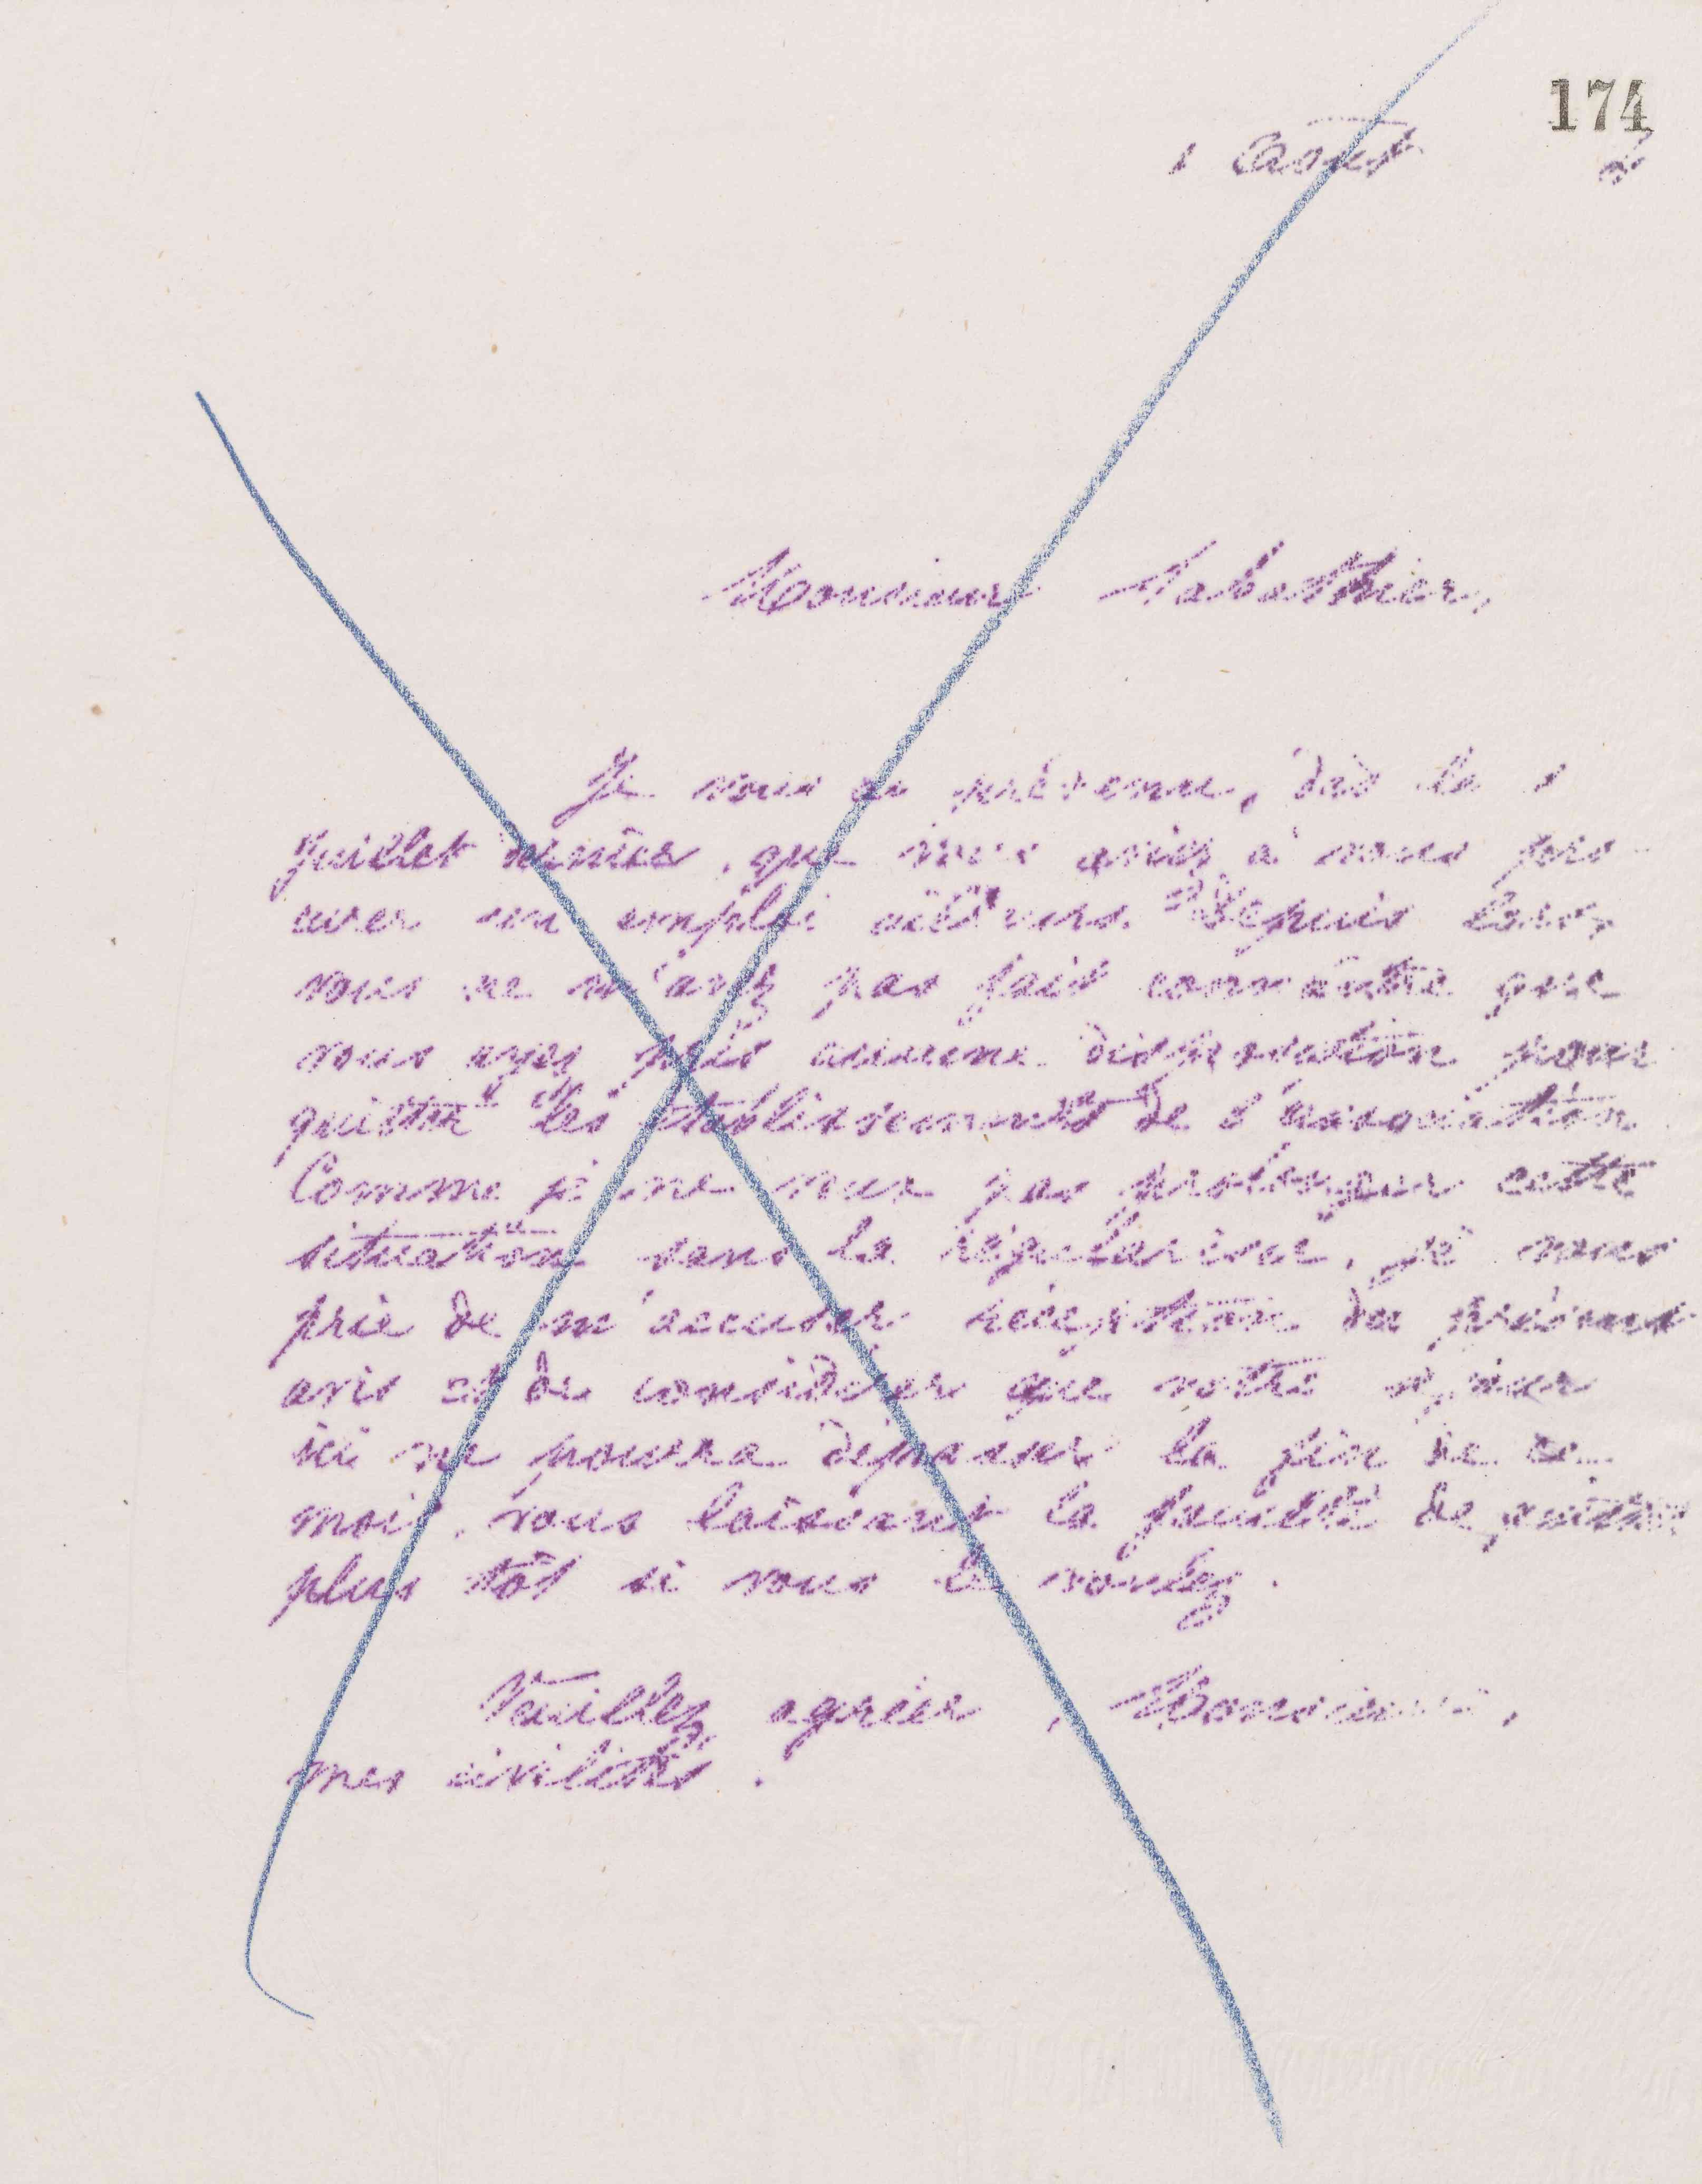 174
1 Août
Monsieur Sabathier,
Je vous ai prévenu, dès le 1
Juillet dernier, que vous aviez à vous pro-
curer un emploi ailleurs. Depuis lors,
vous ne m'avez pas fait connaître que
vous ayez pris aucune disposition pour
quitter les établissements de l'association.
Comme je ne veux pas prolonger cette
situation sans la régulariser, je vous
prie de m'accuser réception du présent
avis et de considérer que votre séjour
ici ne pourra dépasser la fin de ce
mois, vous laissant la faculté de quitter
plus tôt si vous le voulez.
Veuillez agréer, Monsieur,
mes civilités.